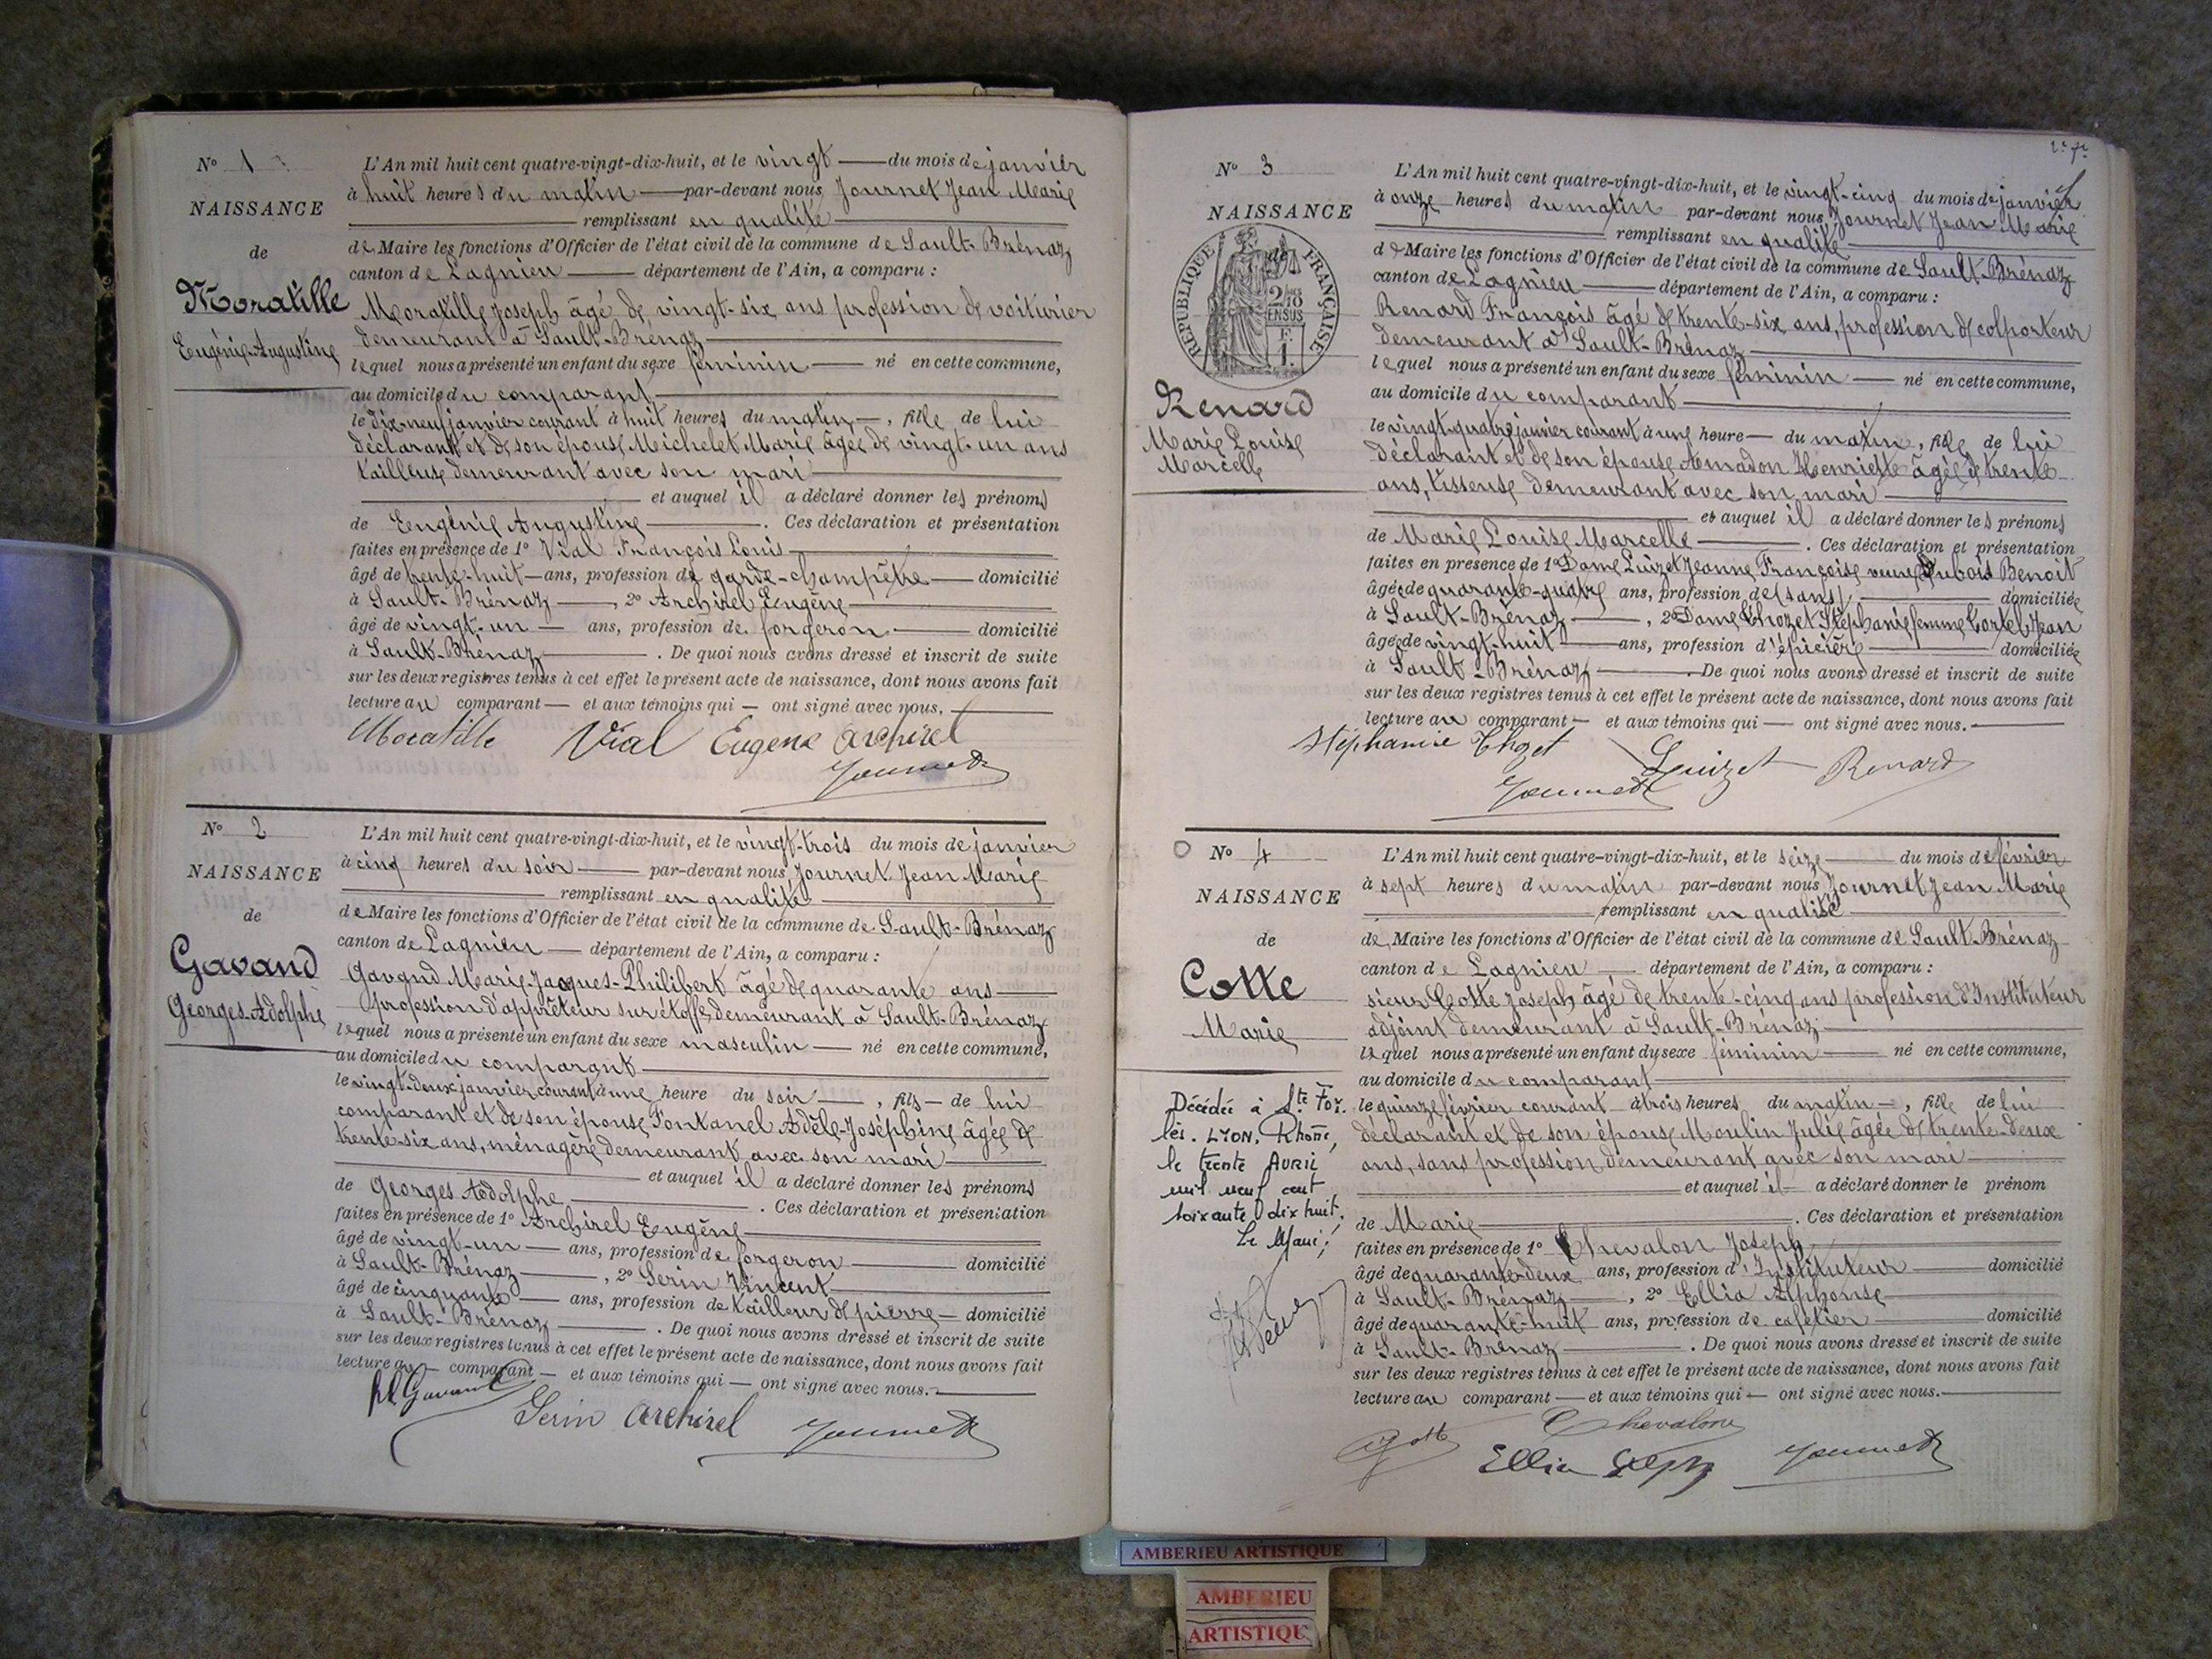 N° 1
NAISSANCE
de
Moratille
Eugénie-Augustine
L'An mil huit cent quatre-vingt-dix-huit, et le vingt — du mois de janvier
à huit heures du matin — par-devant nous Journet Jean Marie
remplissant en qualité
de Maire les fonctions d'Officier de l'état civil de la commune de Sault-Brénaz
canton de Lagnieu — département de l'Ain, a comparu :
Moratille Joseph âgé de vingt-six ans profession de voiturier
demeurant à Sault-Brénaz
lequel nous a présenté un enfant du sexe féminin — né en cette commune,
au domicile du comparant
le dix-neuf janvier courant à huit heures du matin —, fille de lui
déclarant et de son épouse Michelet Marie âgée de vingt-un ans
tailleuse demeurant avec son mari
et auquel il a déclaré donner les prénoms
de Eugénie Augustine — . Ces déclaration et présentation
faites en présence de 1° Vial François Louis
âgé de trente-huit — ans, profession de garde-champêtre — domicilié
à Sault-Brénaz —, 2° Archirel Eugène
âgé de vingt-un — ans, profession de forgeron — domicilié
à Sault-Brénaz — . De quoi nous avons dressé et inscrit de suite
sur les deux registres tenus à cet effet le présent acte de naissance, dont nous avons fait
lecture au comparant — et aux témoins qui — ont signé avec nous. —
Moratille Vial Eugene Archirel
Journet
N° 2
NAISSANCE
de
Gavand
Georges-Adolphe
L'An mil huit cent quatre-vingt-dix-huit, et le vingt-trois du mois de janvier
à cinq heures du soir — par-devant nous Journet Jean Marie
remplissant en qualité
de Maire les fonctions d'Officier de l'état civil de la commune de Sault-Brénaz
canton de Lagnieu — département de l'Ain, a comparu :
Gavand Marie-Jacques-Philibert âgé de quarante ans
profession d'apprêteur sur étoffe, demeurant à Sault-Brénaz
lequel nous a présenté un enfant du sexe masculin — né en cette commune,
au domicile du comparant
le vingt-deux janvier courant à une heure du soir —, fils — de lui
comparant et de son épouse Fontanel Adèle-Joséphine âgée de
trente-six ans, ménagère demeurant avec son mari
et auquel il a déclaré donner les prénoms
de Georges Adolphe — . Ces déclaration et présentation
faites en présence de 1° Archirel Eugène
âgé de vingt-un — ans, profession de forgeron — domicilié
à Sault-Brénaz —, 2° Serin Vincent
âgé de cinquante — ans, profession de tailleur de pierre — domicilié
à Sault-Brénaz — . De quoi nous avons dressé et inscrit de suite
sur les deux registres tenus à cet effet le présent acte de naissance, dont nous avons fait
lecture au — comparant — et aux témoins qui — ont signé avec nous. —
Gavand
Serin Archirel Journet
N° 3
NAISSANCE
de
RÉPUBLIQUE FRANÇAISE
2/10
EN SUS
Renard
Marie Louise
Marcelle
L'An mil huit cent quatre-vingt-dix-huit, et le vingt-cinq du mois de janvier
à onze heures du matin par-devant nous Journet Jean Marie
remplissant en qualité
de Maire les fonctions d'Officier de l'état civil de la commune de Sault-Brénaz
canton de Lagnieu — département de l'Ain, a comparu :
Renard François âgé de trente-six ans, profession de colporteur
demeurant à Sault-Brénaz
lequel nous a présenté un enfant du sexe féminin — né en cette commune,
au domicile du comparant
le vingt-quatre janvier courant à une heure — du matin, fille de lui
déclarant et de son épouse Amadon Henriette âgée de trente
ans, tisseuse demeurant avec son mari
et auquel il a déclaré donner les prénoms
de Marie Louise Marcelle — . Ces déclaration et présentation
faites en présence de 1° Dame Luizet Jeanne Françoise veuve Dubois Benoit
âgée de quarante-quatre ans, profession de (sans) — domiciliée
à Sault-Brénaz —, 2° Dame Thozet Stéphanie femme Cortel Jean
âgée de vingt-huit — ans, profession d'épicière — domiciliée
à Sault-Brénaz — . De quoi nous avons dressé et inscrit de suite
sur les deux registres tenus à cet effet le présent acte de naissance, dont nous avons fait
lecture au comparant — et aux témoins qui — ont signé avec nous. —
Stéphanie Thozet Luizet Renard
Journet
N° 4
NAISSANCE
de
Cotte
Marie
Décédée à Ste Foy
lès. LYON, Rhône,
le trente AVRIL
mil neuf cent
soixante dix huit.
Le Maire,
L'An mil huit cent quatre-vingt-dix-huit, et le seize — du mois de février
à sept heures du matin par-devant nous Journet Jean Marie
remplissant en qualité
de Maire les fonctions d'Officier de l'état civil de la commune de Sault-Brénaz
canton de Lagnieu — département de l'Ain, a comparu :
sieur Cotte Joseph âgé de trente-cinq ans profession d'Instituteur
adjoint demeurant à Sault-Brénaz
lequel nous a présenté un enfant du sexe féminin — né en cette commune,
au domicile du comparant
le quinze février courant à trois heures du matin —, fille de lui
déclarant et de son épouse Moulin Julie âgée de trente-deux
ans, sans profession demeurant avec son mari
et auquel il — a déclaré donner le prénom
de Marie — . Ces déclaration et présentation
faites en présence de 1° Chevalon Joseph
âgé de quarante-deux ans, profession d'Instituteur — domicilié
à Sault-Brénaz —, 2° Ellia Alphonse
âgé de quarante-huit ans, profession de cafetier — domicilié
à Sault-Brénaz — . De quoi nous avons dressé et inscrit de suite
sur les deux registres tenus à cet effet le présent acte de naissance, dont nous avons fait
lecture au comparant — et aux témoins qui — ont signé avec nous. —
Cotte Chevalon
Ellia Journet
AMBERIEU ARTISTIQUE
AMBERIEU
ARTISTIQU